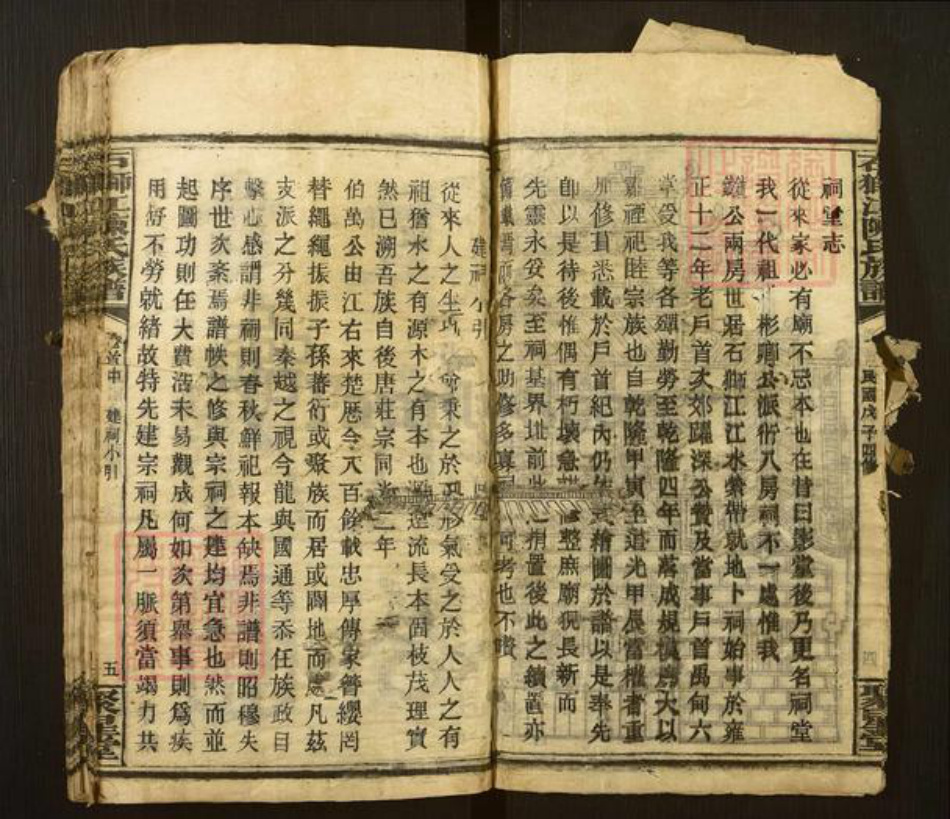 石獅江陳氏族譜
民國戊子四修
四
聚星堂
祠堂志
從來家必有廟不忘本也在昔曰影堂後乃更名祠堂
我一代祖 彬 公派衍八房祠不一處惟我
公兩房世居石獅江江水縈帶就地卜祠始事於雍
正十二年老戶首次郊躍深公贊及當事戶首禹甸六
掌受我等各殫勤勞至乾隆四年而落成規模廣大以
禋祀睦宗族也自乾隆甲寅至道光甲辰當權者重
修葺悉載於戶首紀內仍 繪圖於譜以是奉先
即以是待後惟偶有朽壞急 修整庶廟貌長新而
先靈永妥矣至祠基界址前此 捐置後此之續置亦
各房之助修多寡 可考也不贅
建祠小引
從來人之生 莫 秉之於 形氣受之於人人之有
祖猶水之有源木之有本也源遠流長本固枝茂理實
然已溯吾族自後唐莊宗同光二年
伯萬公由江右來楚歷今八百餘載忠厚傳家簪纓罔
替繩繩振振子孫蕃衍或聚族而居或闢地而處凡茲
支派之分幾同秦越之視今龍與國通等忝任族政目
擊心感謂非祠則春秋鮮祀報本缺焉非譜則昭穆失
序世次紊焉譜帙之修與宗祠之建均宜急也然而並
起圖功則任大費浩未易觀成何如次第舉事則爲疾
用舒不勞就緒故特先建宗祠凡屬一脈須當竭力共
石獅江陳氏族譜
卷首中
建祠小引
五
聚星堂